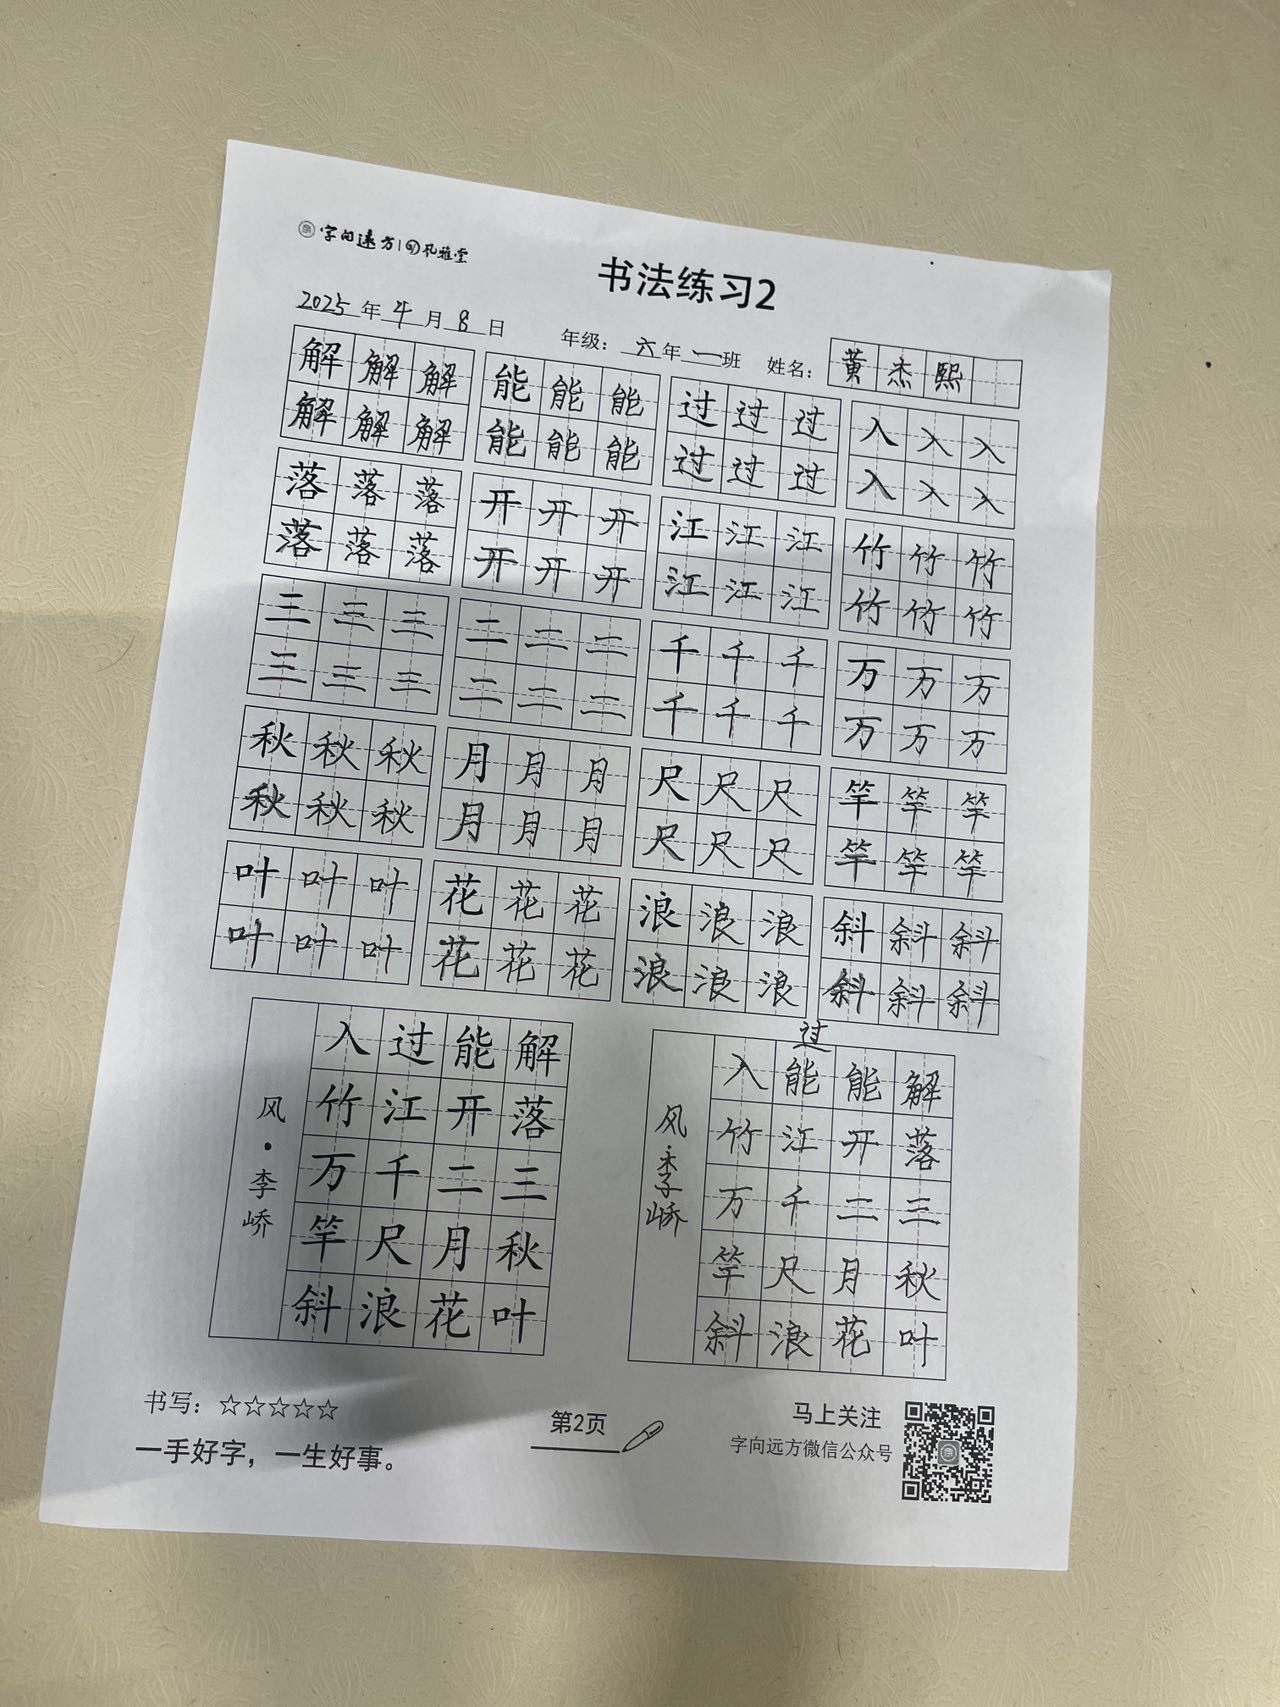 字向远方 孔雅堂
书法练习2
2025年4月8日 年级：六年一班 姓名：黄杰熙
解解解 能能能 过过过 入入入
解解解 能能能 过过过 入入入
落落落 开开开 江江江 竹竹竹
落落落 开开开 江江江 竹竹竹
三三三 二二二 千千千 万万万
三三三 二二二 千千千 万万万
秋秋秋 月月月 尺尺尺 竿竿竿
秋秋秋 月月月 尺尺尺 竿竿竿
叶叶叶 花花花 浪浪浪 斜斜斜
叶叶叶 花花花 浪浪浪 斜斜斜
解落三秋叶
能开二月花
过江千尺浪
入竹万竿斜
风·李峤
解落三秋叶
能开二月花
过
能江千尺浪
入竹万竿斜
风·李峤
书写：☆☆☆☆☆
一手好字，一生好事。
第2页
马上关注
字向远方微信公众号